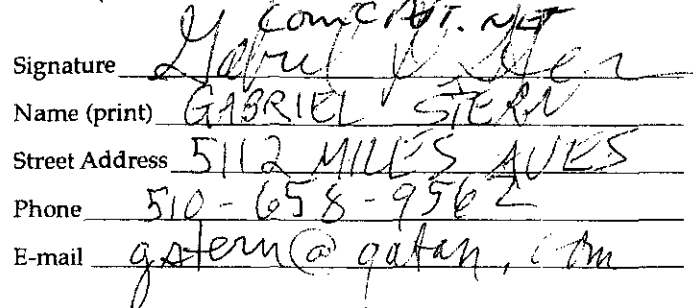 COMCAST.NET
Signature Gabriel Stern
Name (print) GABRIEL STERN
Street Address 5112 MILES AVES
Phone 510-658-9562
E-mail gstern@qatan.com